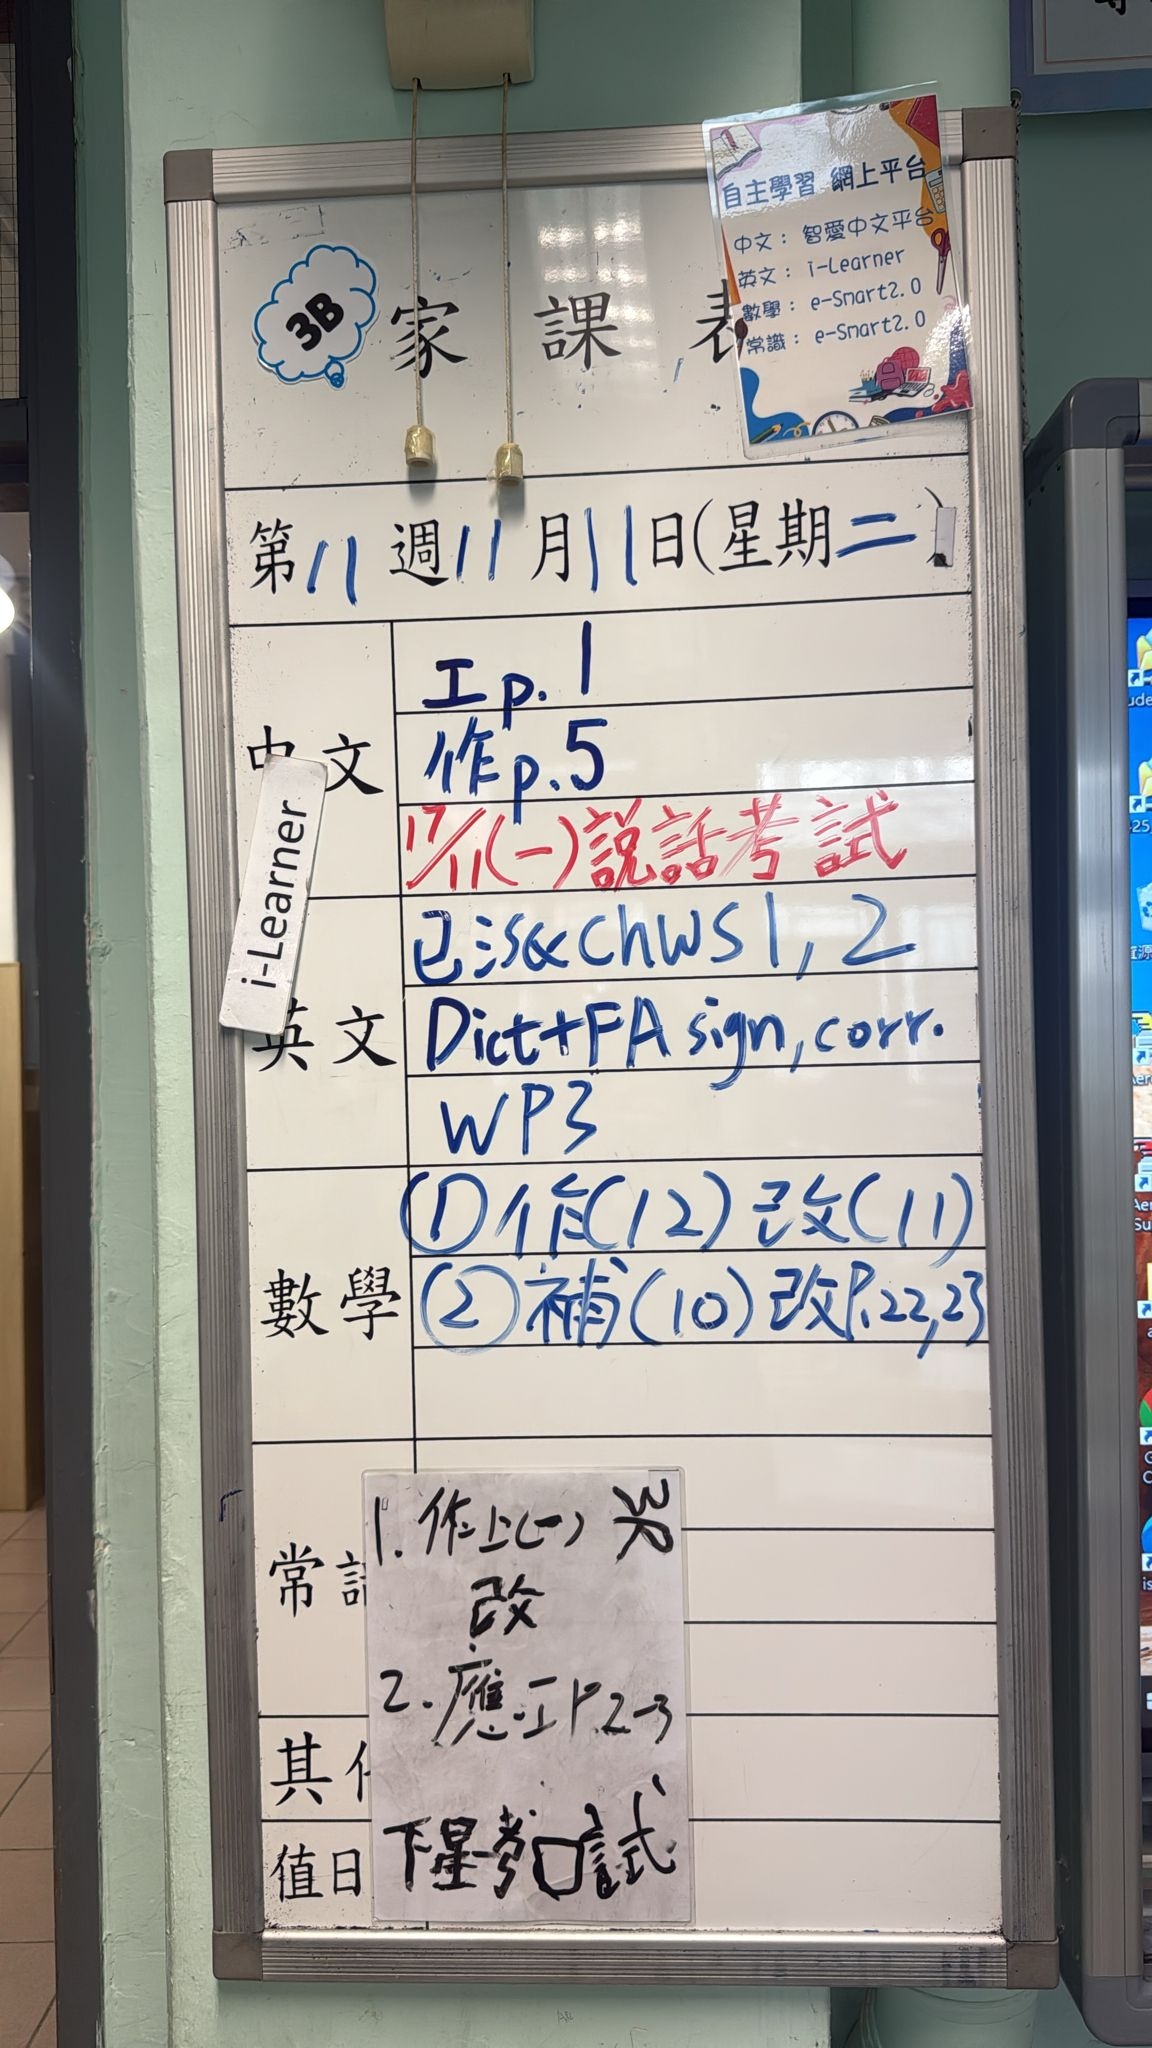 自主學習 網上平台
中文：智愛中文平台
英文：i-Learner
數學：e-Smart2.0
常識：e-Smart2.0
3B 家課表
第11週11月11日(星期二)
中文
工p.1
作p.5
17/11(一)說話考試
i-Learner
英文
ChWS1,2
Dict+FA sign, corr.
WP3
數學
①作(12)改(11)
②補(10)改P.22,23
常
1.作上(一)
改
2.應工P.2-3
其
下星考口試
值日